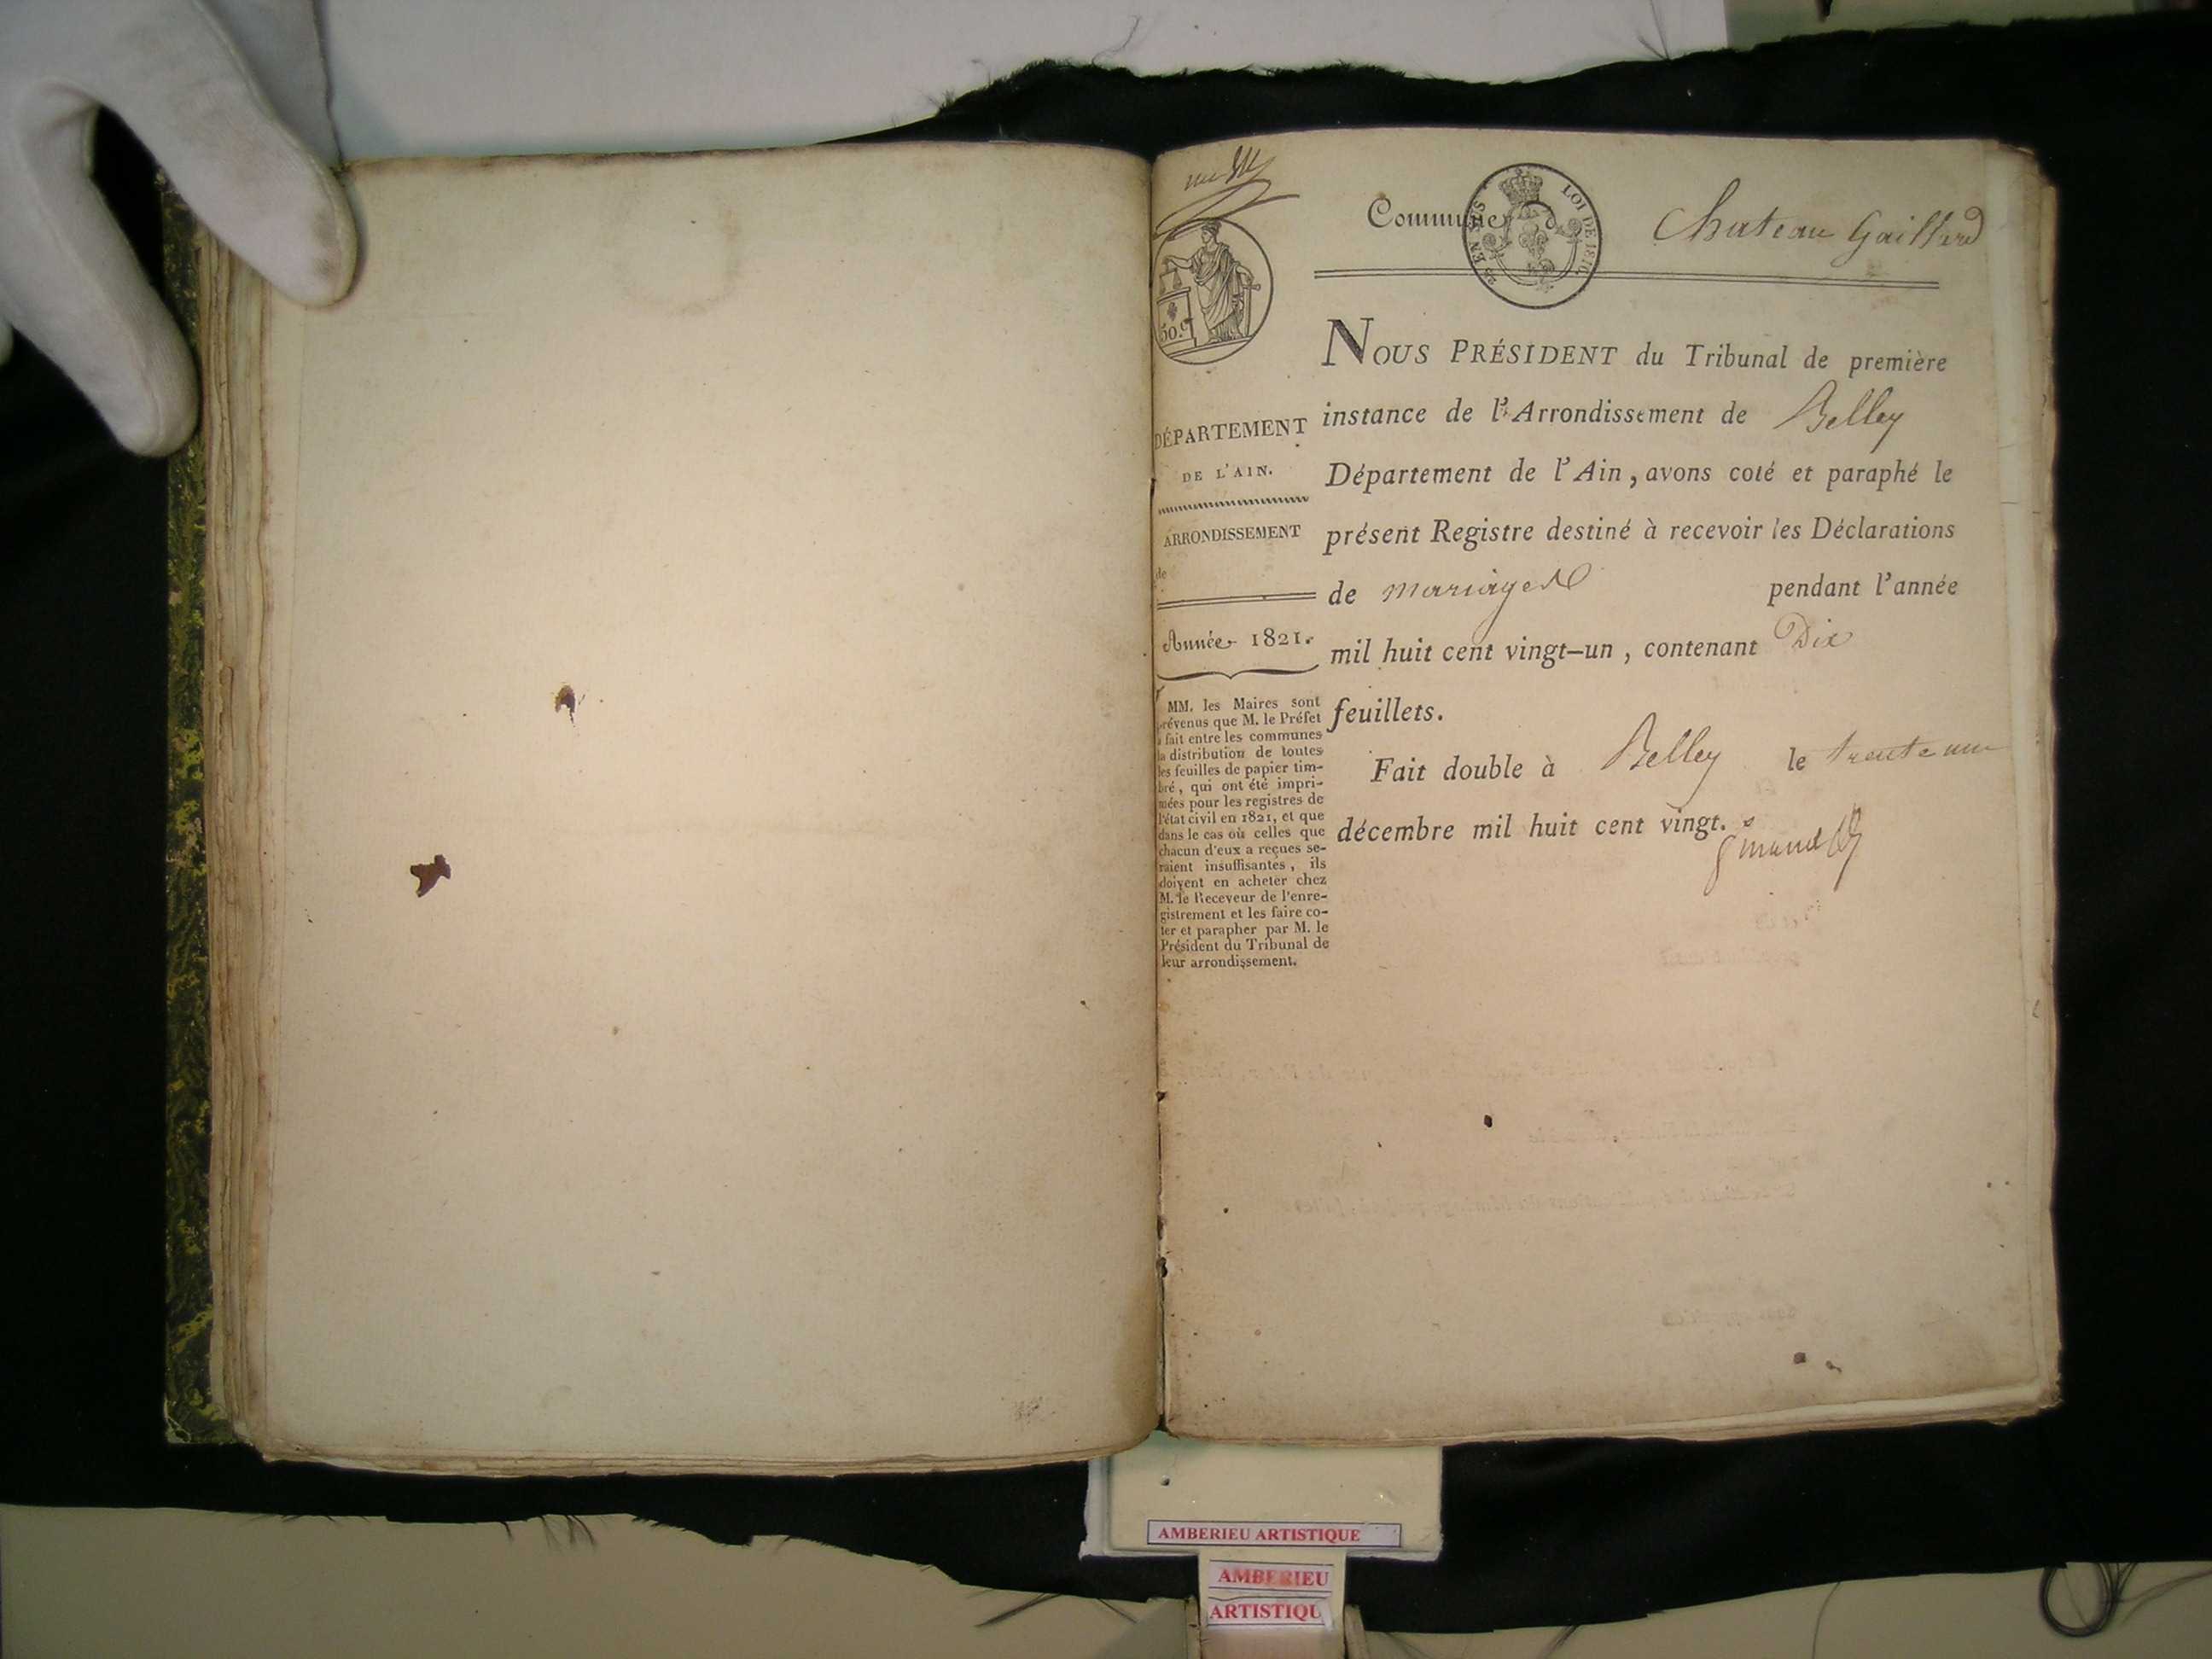 Commune d
Chateau Gaillard
LOI DE 1816
50.C
NOUS PRÉSIDENT du Tribunal de première
instance de l'Arrondissement de Belley
Département de l'Ain, avons coté et paraphé le
présent Registre destiné à recevoir les Déclarations
de mariages pendant l'année
mil huit cent vingt-un, contenant Dix
feuillets.
Fait double à Belley le trente un
décembre mil huit cent vingt.
DÉPARTEMENT
DE L'AIN.
ARRONDISSEMENT
de
Année 1821.
MM. les Maires sont
prévenus que M. le Préfet
a fait entre les communes
la distribution de toutes
les feuilles de papier tim-
bré, qui ont été impri-
mées pour les registres de
l'état civil en 1821, et que
dans le cas où celles que
chacun d'eux a reçues se-
raient insuffisantes, ils
doivent en acheter chez
M. le Receveur de l'enre-
gistrement et les faire co-
ter et parapher par M. le
Président du Tribunal de
leur arrondissement.
AMBERIEU ARTISTIQUE
AMBERIEU
ARTISTIQU